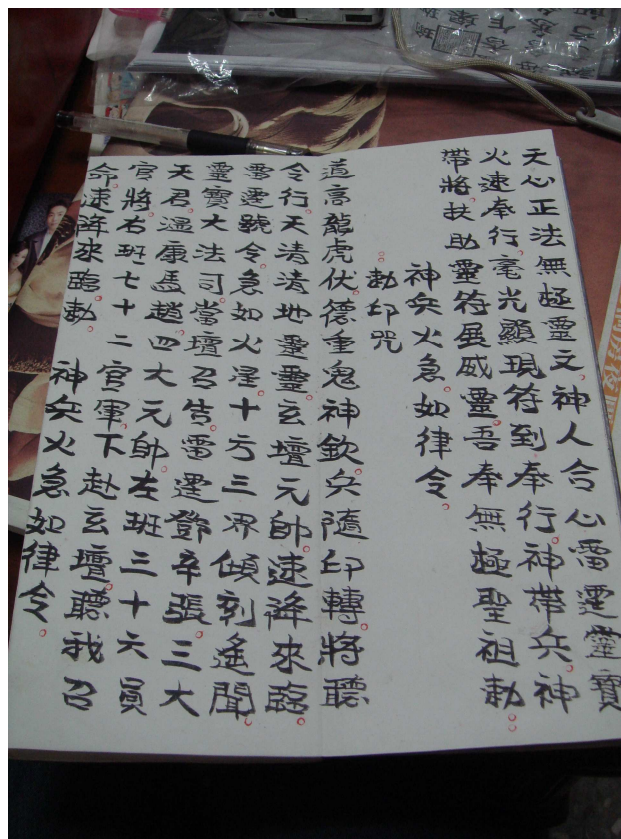 天心正法無極靈文。神人合心雷霆靈寶
火速奉行。毫光顯現符到奉行。神帶兵神
帶將。扶助靈符展威靈。吾奉無極聖祖勅。。
神兵火急如律令。
。。勅印咒
道高龍虎伏。德重鬼神欽。兵隨印轉。將聽
令行。天清清地靈靈。玄壇元帥。速降來臨。
雷霆號令。急如火星。十方三界傾刻遙聞。
靈寶大法司。當壇召告。雷霆鄧辛張三大
天君。溫康馬趙四大元帥。左班三十六員
官將。右班七十二官軍。下赴玄壇。聽我召
命。速降來臨勅。 神兵火急如律令。